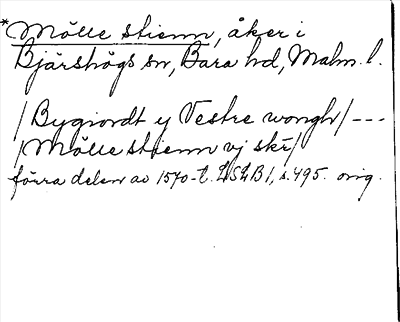 *Mölle stienn, åker i
Bjärshögs sn, Bara hd, Malm. l.
/Bygiordt y Vestre wongh/ ---
/Mölle stienn vj skr/
förra delen av 1570-t. LSLB 1, s. 495. orig.